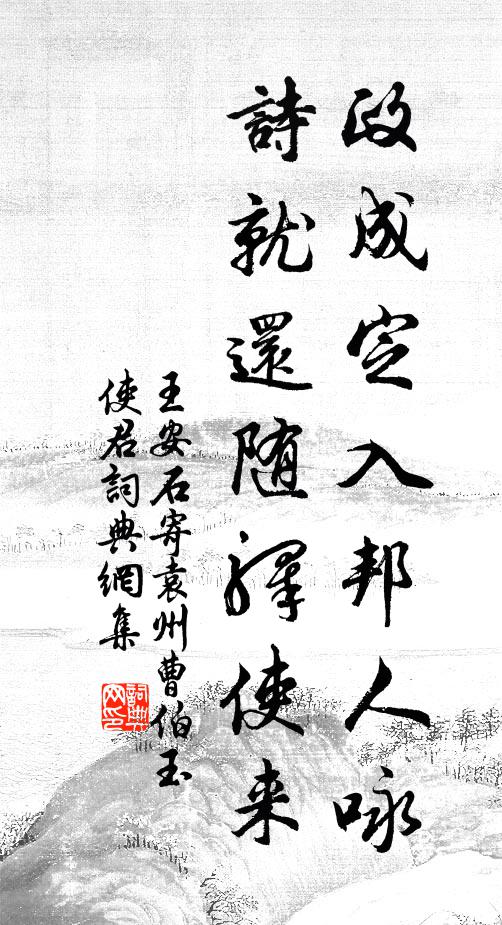 政成定入邦人咏
詩就還随驛使来
王安石寄袁州曹伯玉
使君詞典網集
詞典网印